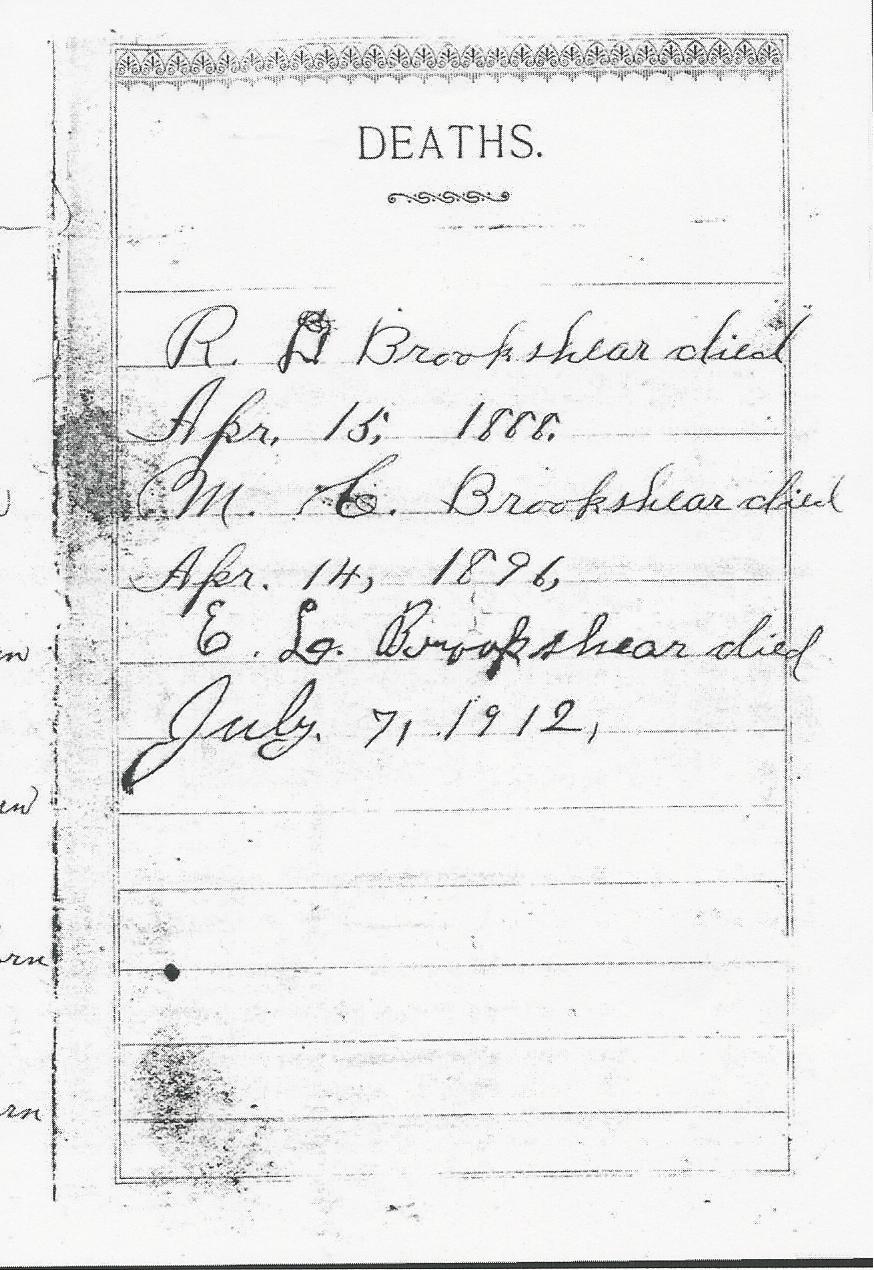 DEATHS.
R. D Brookshear died
Apr. 15, 1888.
M. C. Brookshear died
Apr. 14, 1896,
E. L. Brookshear died
July. 7, 1912,